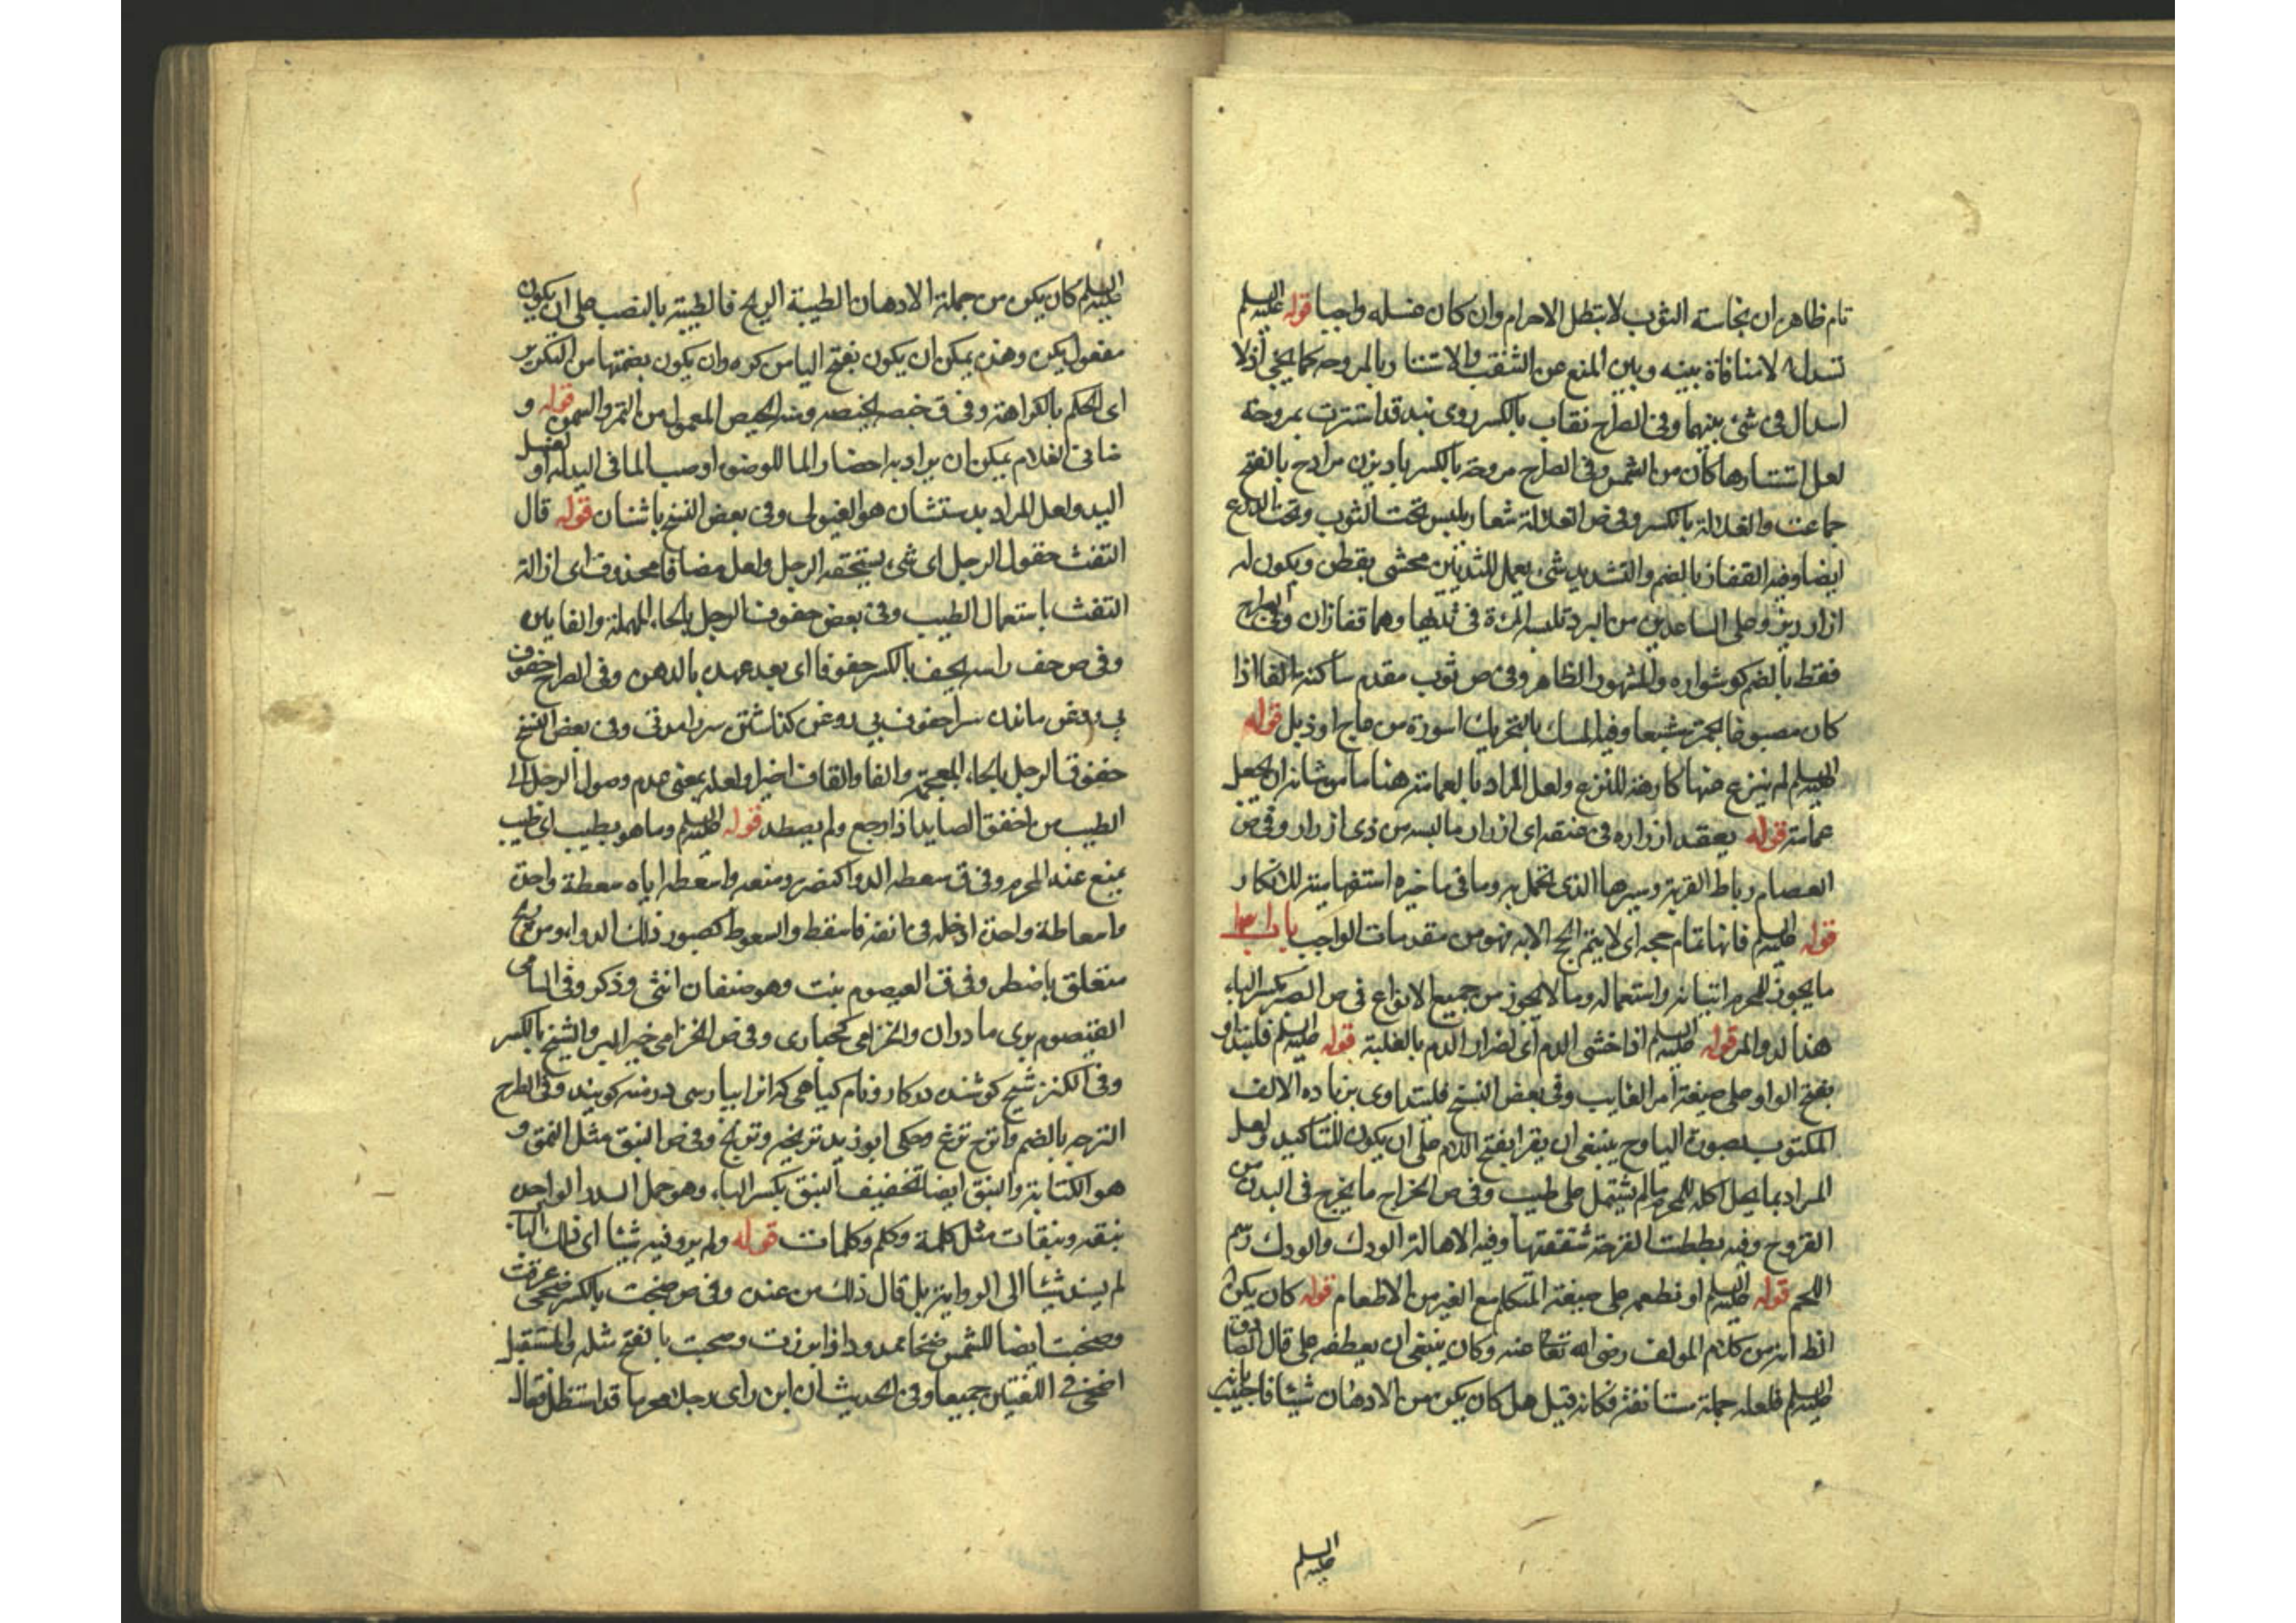 تام ظاهر ان نجاسة الثوب لا تبطل الاحرام وان كان غسله واجبا قوله عليه السلم
تسدله لا منافاة بينه وبين المنع عن الثقب والاستتار بالمروحه كما يخفى اذ لا
اسدال فى شئ بينهما وفى الصراح نقاب بالكسر روى بند قد استترت بمروحة
لعل استتارها كان من الشمس وفى الصراح مروحة بالكسر بادبزن مراوح بالفتح
جماعت والغلالة بالكسر وفى ص الغلالة شعار يلبس تحت الثوب وتحت الدرع
ايضا وفيه القفاز بالضم والتشديد شئ يعمل لليدين محشى بقطن ويكون له
ازرار ويزر على الساعدين من البرد تلبسه المرءة فى يديها وهما قفازان وفى الصراح
فقط بالضم كوشواره والمشهور الظاهر وفى ص ثوب مقدم ساكنة الفا اذا
كان مصبوغا بحمرة مشبعا وفيه المسك بالتحريك اسورة من عاج او ذبل قوله
عليه السلم لم ينزع عنها كارهة للنزع ولعل المراد بالعمامة هنا ما من شانه ان يجعل
عمامة قوله يعقد ازراره فى عنقه اى ازرار ما لبسه من ذى ازرار وفى ص
العصام رباط القربة وسيرها الذى تحمل به وما فى ما خيره استفهامية للانكار
قوله عليه السلم فانها تمام حجه اى لا يتم الحج الا به فهو من مقدمات الواجب باب
ما يجوز للمحرم اتيانه واستعماله وما لا يجوز من جميع الانواع فى ص الصبر بكسر الباء
هذا الدوا المر قوله عليه السلم اذا خشى الدم اى اضرار الدم بالغلبة قوله عليه السلم فليتداو
بفتح الواو على صيغة امر الغايب وفى بعض النسخ فليتداوى بزيادة الالف
المكتوب بصورة اليا وح ينبغى ان يقرا بفتح اللام على ان يكون للتاكيد ولعل
المراد بما يحل اكله للمحرم ما لم يشتمل على طيب وفى ص الخراج ما يخرج فى البدن من
القروح وفيه بططت القرحة شققتها وفيه الاهالة الودك والودك دسم
اللحم قوله عليه السلم او نطعم على صيغة المتكلم مع الغير من الاطعام قوله كان يكن
الظ انه من كلام المولف رضى الله تعالى عنه وكان ينبغى ان يعطفه على قال الصادق
عليه السلم فلعله جملة مستانفة فكانه قيل هل كان يكن من الادهان شيئا فاجيب بانه
عليه السلم
عليه السلم كان يكن من جملة الادهان الطيبة الريح فالطيبة بالنصب على ان يكون
مفعول يكن وهذن يمكن ان يكون بفتح اليا من كره وان يكون بضمها من التكرير
اى الحكم بالكراهة وفى ق خبصه يخبصه ومنه الخبيص المعمول من التمر والسمن قوله و
ضا فى الغلام يمكن ان يراد به احضار الما للوضو او صب الما فى اليد له او لغسل
اليد ولعل المراد بدستشان هو الغسول وفى بعض النسخ باشنان قوله قال
التفث حقوق الرجل اى شئ يستحقه الرجل ولعل مضافا محذوف اى ازالة
التفث باستعمال الطيب وفى بعض حفوف الرجل بالحاء المهملة والفا يين
وفى ص حف راسه يحف بالكسر حفوفا اى بعد عهده بالدهن وفى الصراح حفوف
بى روغن ماندن سر احفوف بى روغن كذاشتن سر را مدتى وفى بعض النسخ
خفوق الرجل بالخاء المعجمة والفا والقاف اخيرا ولعله بمعنى عدم وصول الرجل الى
الطيب من اخفق الصايد اذا رجع ولم يصطد قوله عليه السلم وما هو بطيب اى طيب
يمنع عنه المحرم وفى ق سعطه الدوا كنصر ومنعه واسعطه اياه سعطة واحدة
واسعاطة واحدة ادخله فى انفه فاسقط والسعوط كصبور ذلك الدوا ومن ريح
متعلق باضطر وفى ق القيصوم بنت وهو صنفان انثى وذكر وفى السامى
القيصوم بوى مادران والخزامى كحبارى وفى ص الخزامى خيرى البر والشيح بالكسر
وفى الكنز شيح كوشنده در كار و نام كياهى كه انرا بپارسى درمنه كويند وفى الصراح
الترجه بالضم واترج ترنج وحكى ابو زيد ترنجه وترنج وفى ص النبق مثل النمق و
هو الكتابة والنبق ايضا تخفيف النبق بكسر الباء وهو حمل السدر الواحدة
نبقة ونبقات مثل كلمة وكلم وكلمات قوله ولم يرو فيه شيئا اى ذلك
لم يسند شيئا الى الرواية بل قال ذلك من عنده وفى ص ضحيت بالكسر ضحى عرقت
وضحيت ايضا للشمس ضحاء ممدودا اذا برزت وضحيت بالفتح مثله والمستقبل
اضحى فى اللغتين جميعا وفى الحديث ان ابن راى رجلا محرما قد استظل فقال